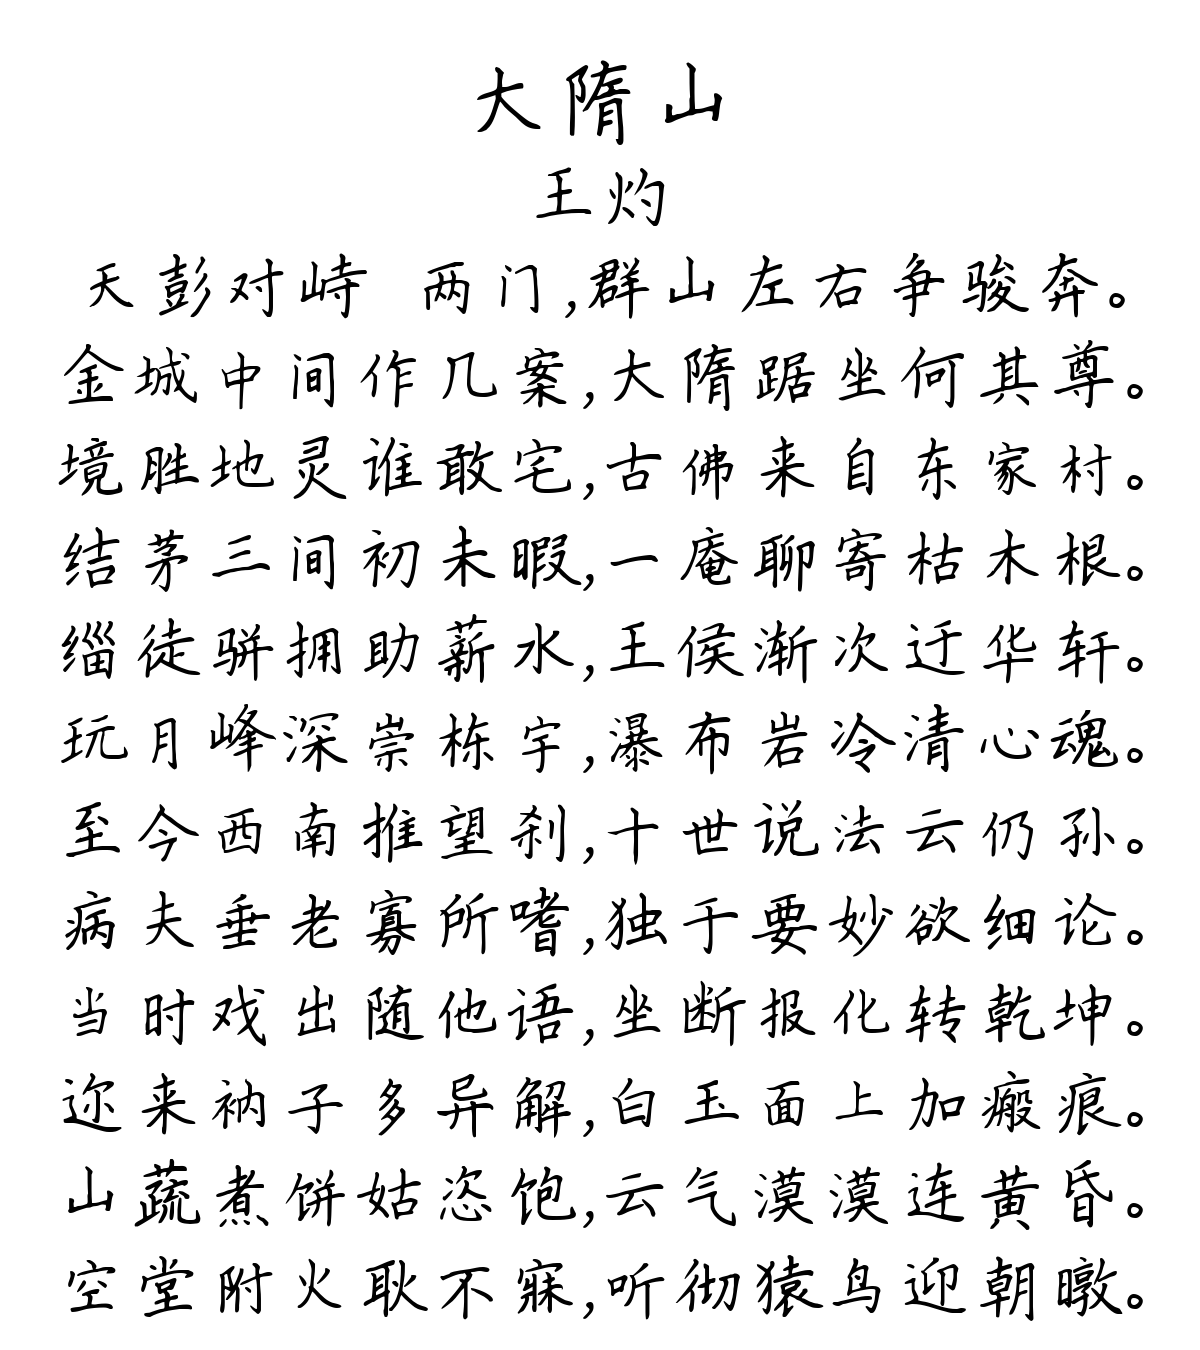 大隋山
王灼
天彭对峙 两门,群山左右争骏奔。
金城中间作几案,大隋踞坐何其尊。
境胜地灵谁敢宅,古佛来自东家村。
结茅三间初未暇,一庵聊寄枯木根。
缁徒骈拥助薪水,王侯渐次迂华轩。
玩月峰深崇栋宇,瀑布岩冷清心魂。
至今西南推望刹,十世说法云仍孙。
病夫垂老寡所嗜,独于要妙欲细论。
当时戏出随他语,坐断报化转乾坤。
迩来衲子多异解,白玉面上加瘢痕。
山蔬煮饼姑恣饱,云气漠漠连黄昏。
空堂附火耿不寐,听彻猿鸟迎朝暾。